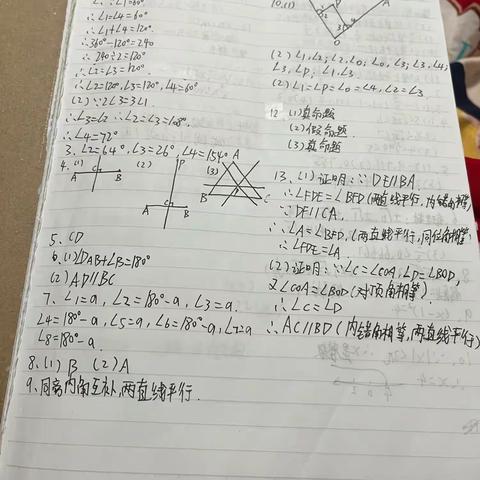 ∵∠1=60°
∴∠1=∠4=60°
∴∠1+∠4=120°
∴360°-120°=240
∴240÷2=120°
∴∠2=∠3=120°
∴∠2=120°,∠3=120°,∠4=60°
(2)∵2∠3=3∠1
∴∠3=∠2 ∴∠2=∠3=108°
∴∠4=72°
3. ∠2=64°,∠3=26°,∠4=154°
4. (1) A C B
(2) P A C B
(3) A B C
5. CD
6. (1)∠DAB+∠B=180°
(2)AD∥BC
7. ∠1=a, ∠2=180°-a, ∠3=a.
∠4=180°-a,∠5=a,∠6=180°-a,∠7=a
∠8=180°-a
8.(1) B (2)A
9.同旁内角互补,两直线平行.
10.(1)
1 2 3 4 A O
(2)∠1,∠2;∠2,∠O;∠O,∠3;∠3,∠4;
∠3,∠P;∠1,∠3
(2)∠1=∠P=∠O=∠4,∠2=∠3
12 (1)真命题
(2)假命题
(3)真命题
13. (1)证明:∵DE∥BA
∴∠FDE=∠BFD(两直线平行,内错角相等)
∵DF∥CA
∴∠A=∠BFD.(两直线平行,同位角相等
∴∠FDE=∠A
(2)证明:∵∠C=∠COA,∠D=∠BOD,
又∠COA=∠BOD(对顶角相等).
∴∠C=∠D
∴AC∥BD(内错角相等,两直线平行)